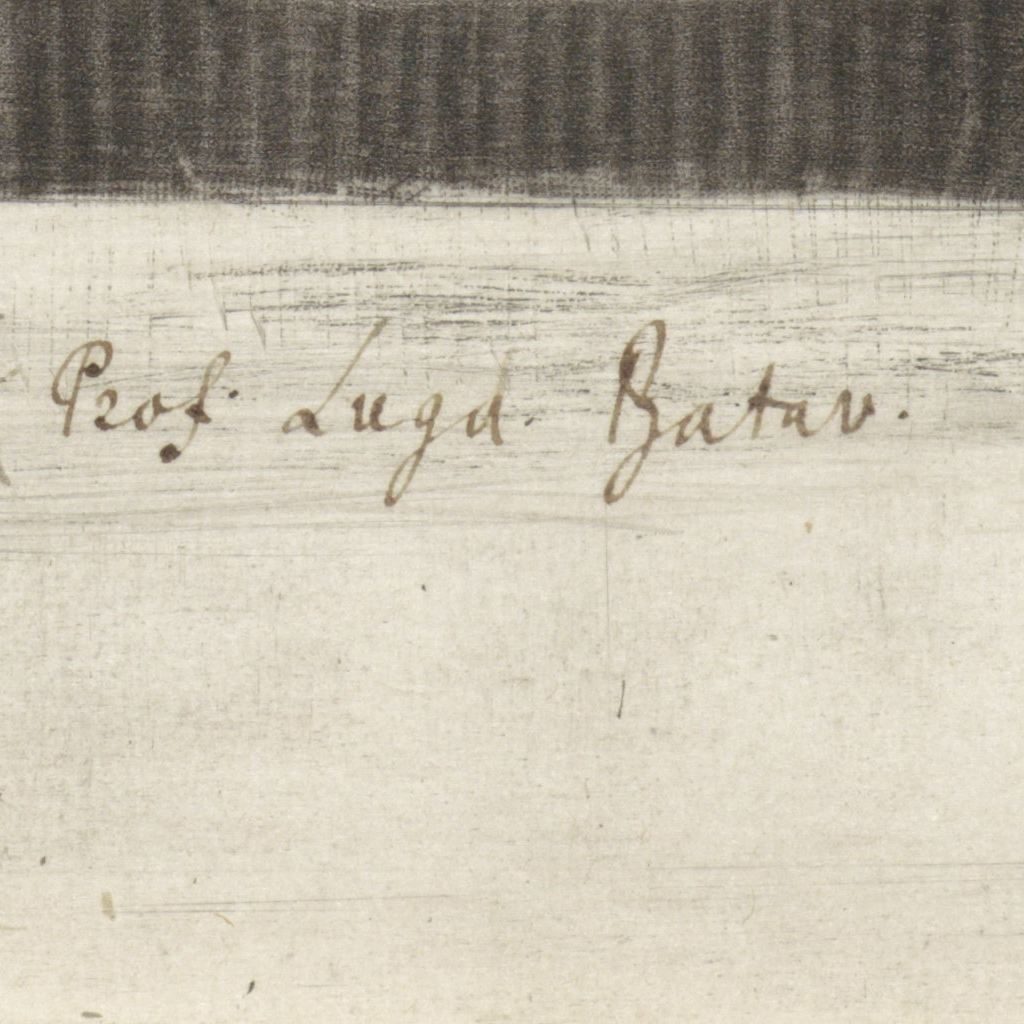 Prof. Lugd. Batav.